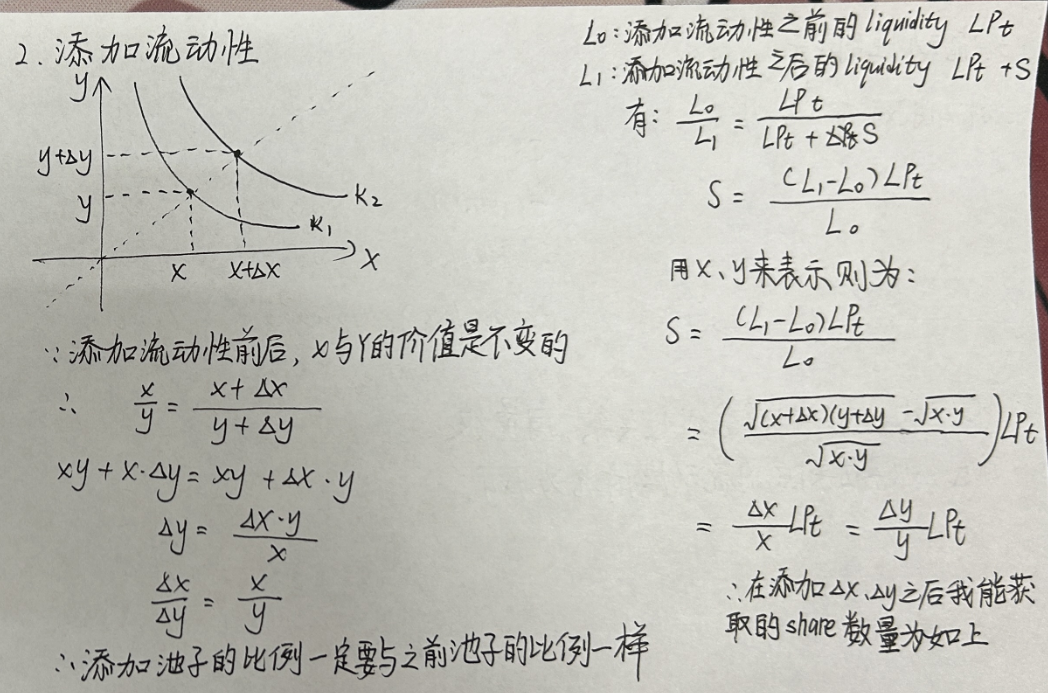 2. 添加流动性
y
y+Δy
y
K₂
K₁
x
x+Δx
X
∵添加流动性前后, X与Y的价值是不变的
∴ x/y = (x+Δx)/(y+Δy)
xy + x·Δy = xy + Δx·y
Δy = Δx·y/x
Δx/Δy = x/y
∴添加池子的比例一定要与之前池子的比例一样
L₀:添加流动性之前的liquidity LPt
L₁:添加流动性之后的liquidity LPt +S
有: L₀/L₁ = LPt/(LPt + S)
S = (L₁-L₀)LPt/L₀
用X、y来表示则为:
S = (L₁-L₀)LPt/L₀
= ((√(x+Δx)(y+Δy) - √x·y)/√x·y)LPt
= Δx/x LPt = Δy/y LPt
∴在添加Δx、Δy之后我能获
取的share数量为如上